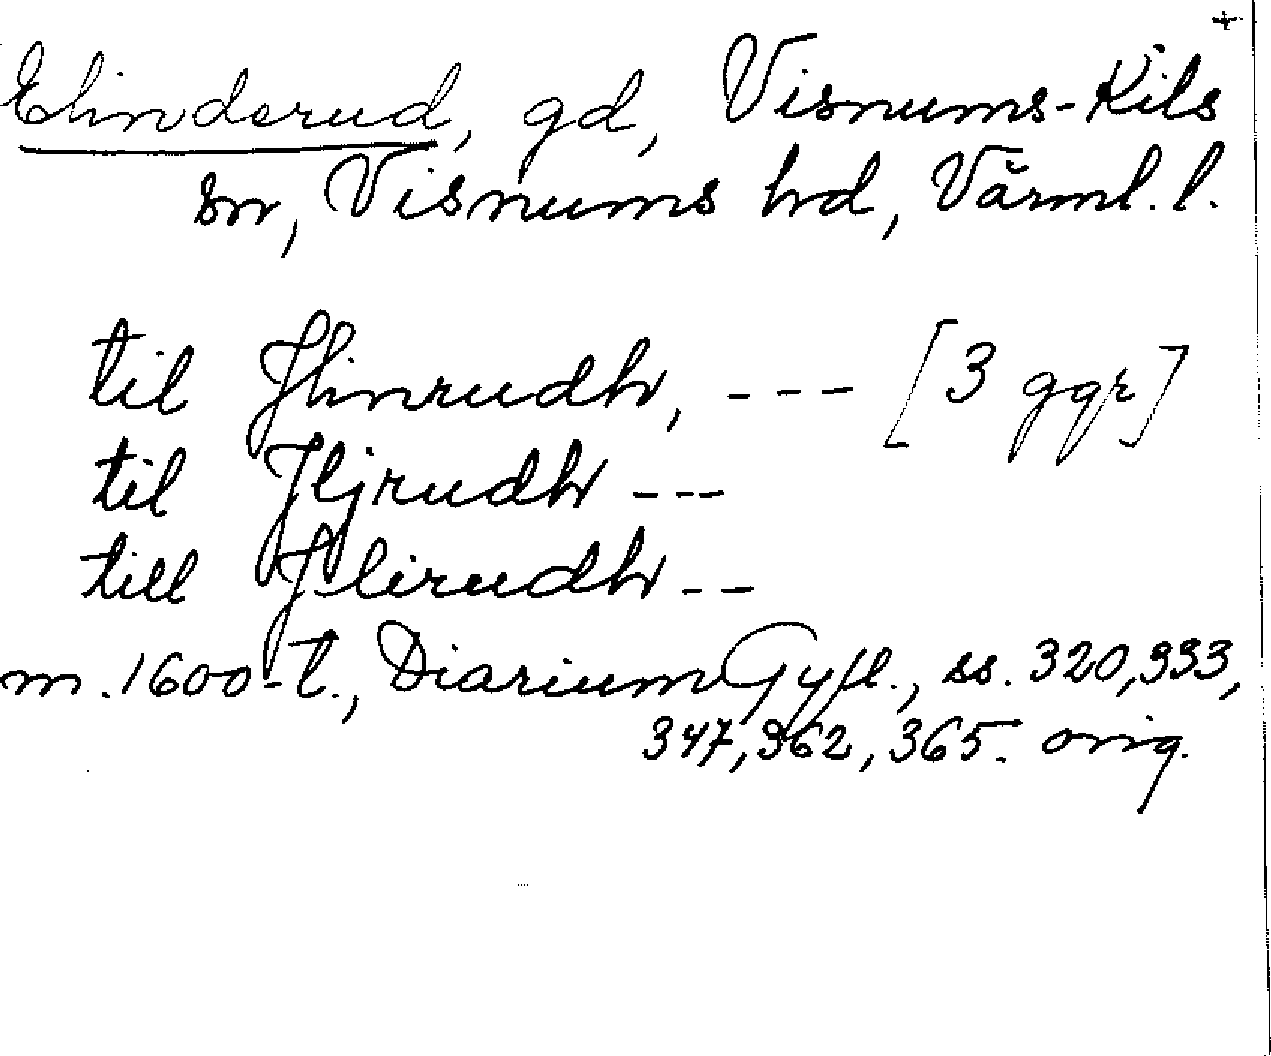 +
Elinderud, gd, Visnums-Kils
sn, Visnums hd, Värml. l.
til Jlinrudh, --- [3 ggr]
til Jljrudh ---
till Jlirudh --
m. 1600-t., Diarium Gyll., ss. 320, 333,
347, 362, 365. orig.